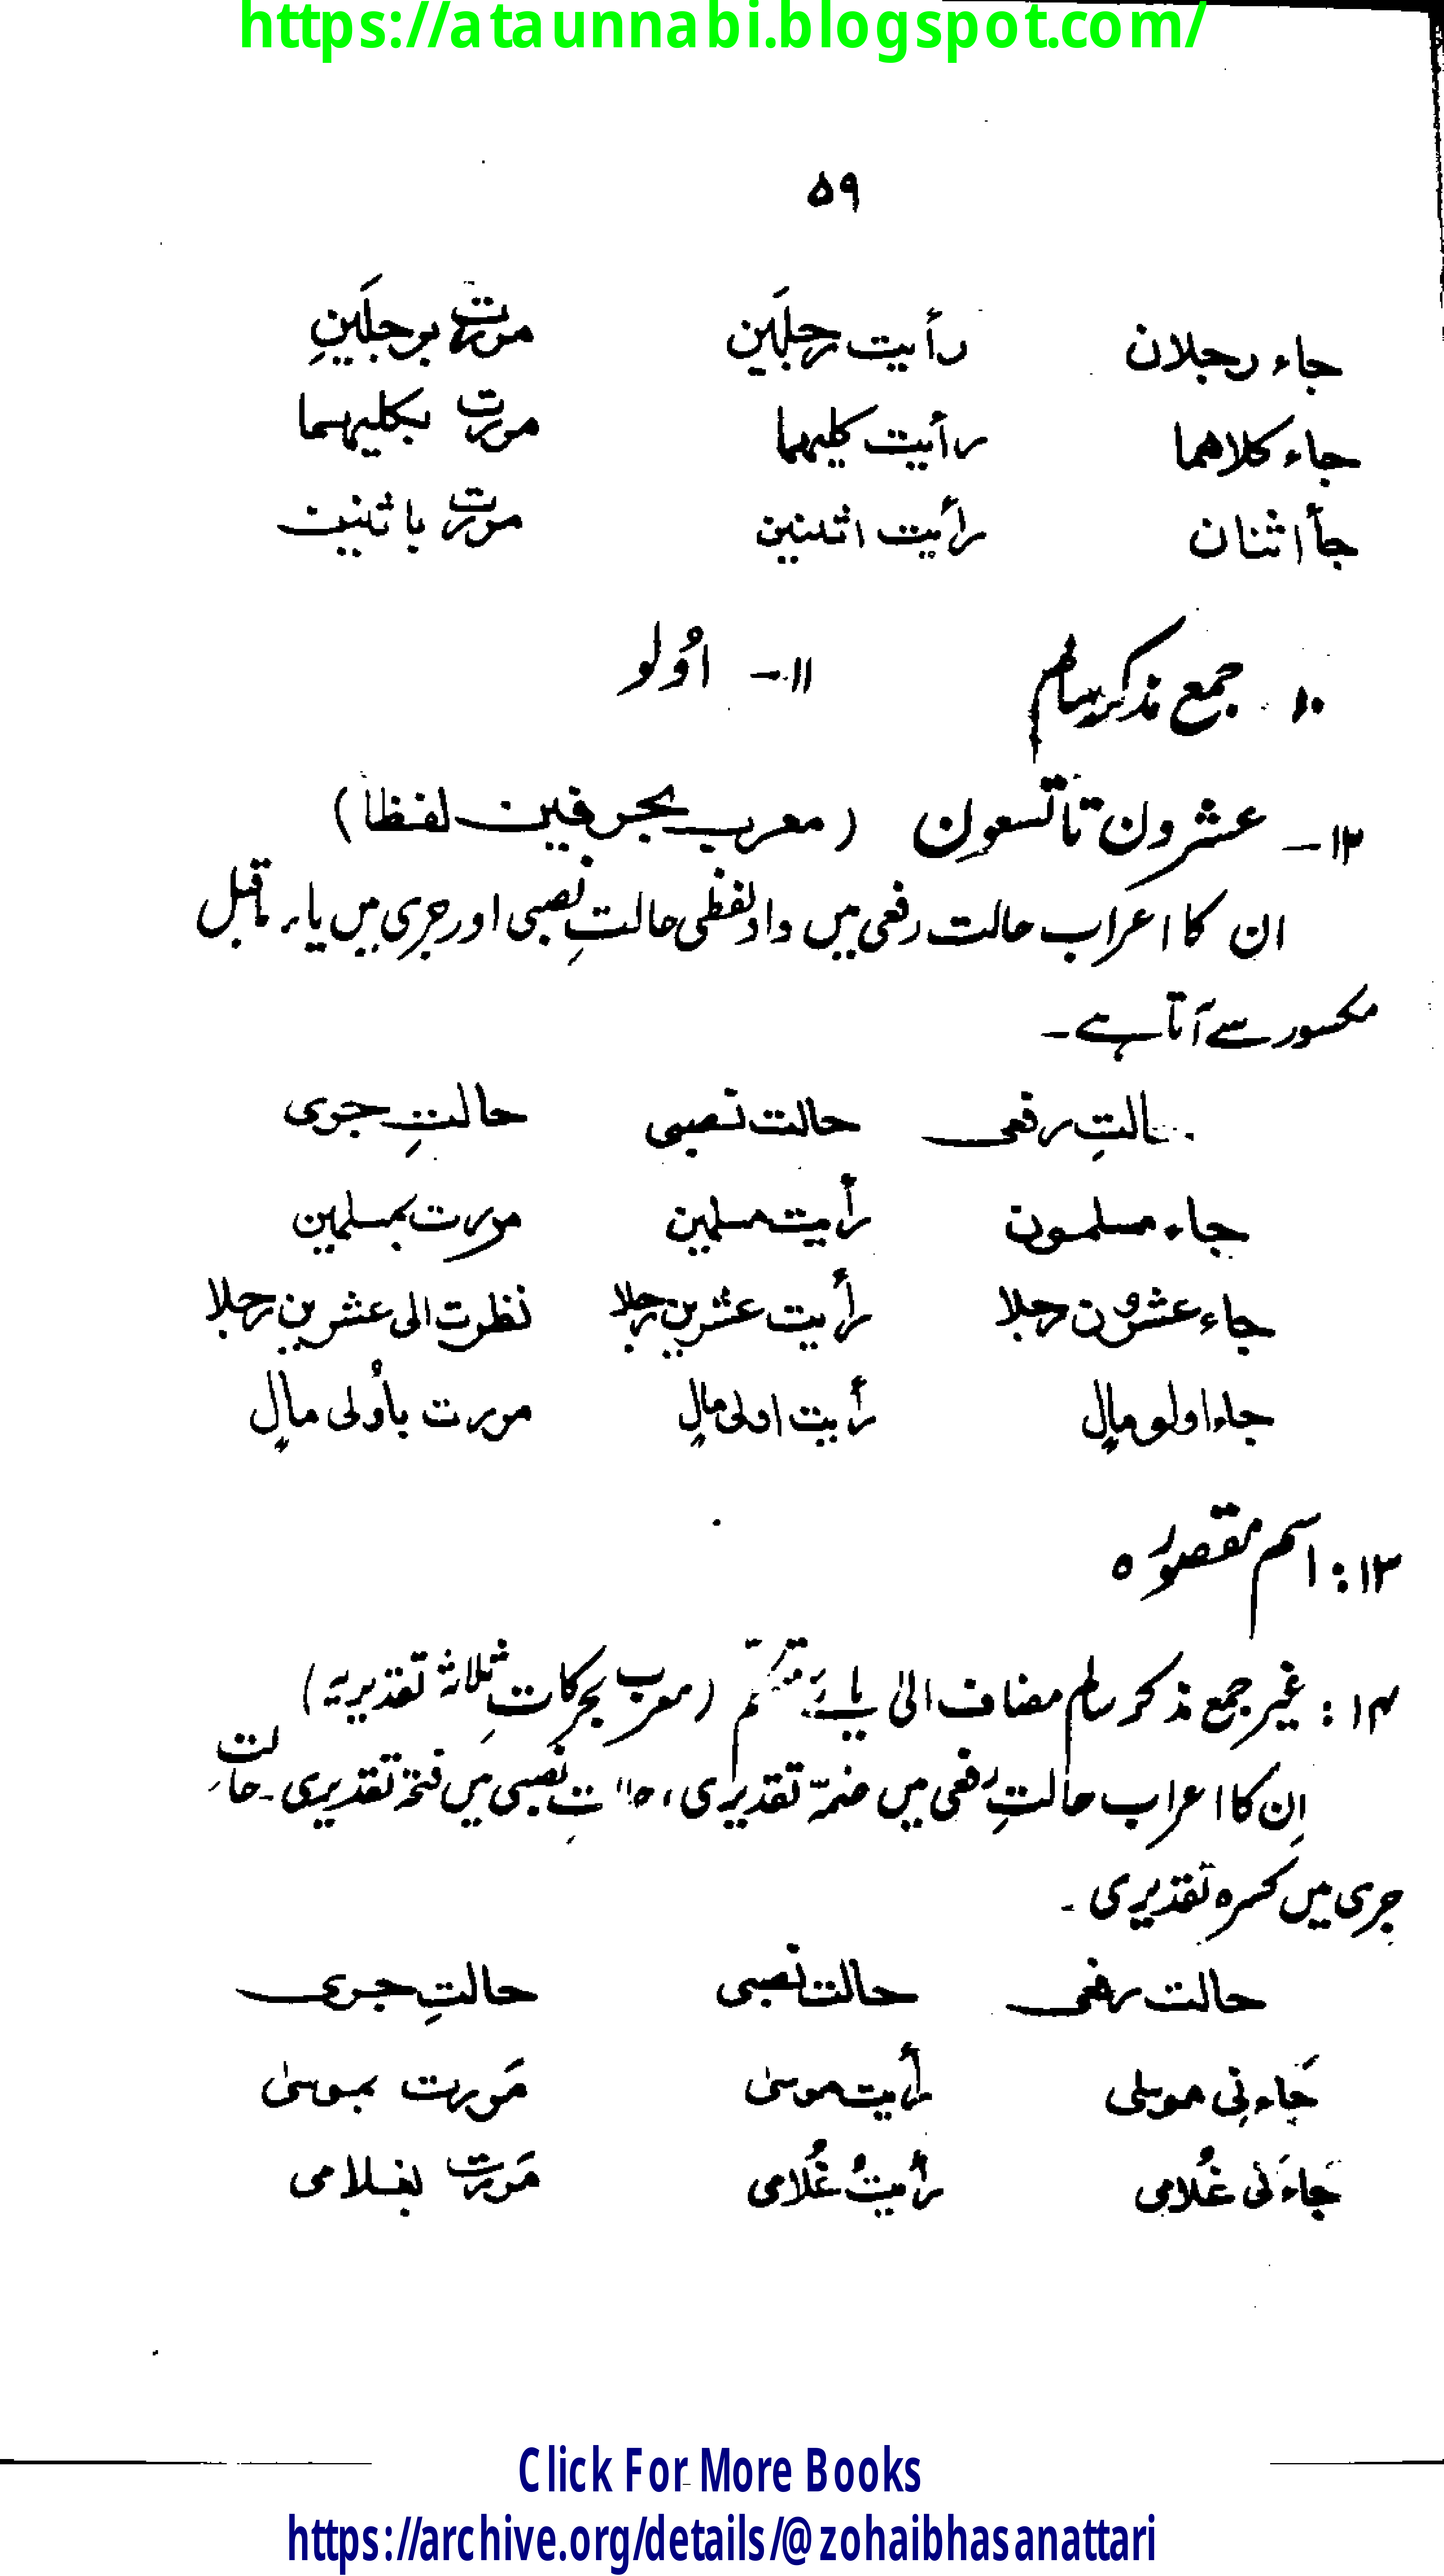 https://ataunnabi.blogspot.com/
۵۹
جاء رجلان رأیت رجلَین مورت برجلَینِ
جاء کلاهما رأیت کلیهما مورت بکلیهما
جأ اثنان رأیت اثنین مورت باثنین
۱۰۔ جمع مذکر سالم ۱۱۔ اُولو
۱۲۔ عشرون تا تسعون (معرب بحرفین لفظاً)
ان کا اعراب حالت رفعی میں واؤ لفظی حالتِ نصبی اور جری میں یاء ماقبل
مکسور سے آتا ہے۔
حالتِ رفعی حالت نصبی حالتِ جری
جاء مسلمون رأیت مسلمین مورت بمسلمین
جاء عشرون رجلا رأیت عشرین رجلا نظرت الی عشرین رجلا
جاء اولو مالٍ رأیت اولی مالٍ مورت بأُولی مالٍ
۱۳: اسم مقصورہ
۱۴: غیر جمع مذکر سالم مضاف الیٰ یائے متکلّم (معرب بحرکاتِ ثلاثہ تقدیریہ)
اِن کا اعراب حالتِ رفعی میں ضمّہ تقدیری، حالتِ نصبی میں فتحۃ تقدیری۔ حالتِ
جری میں کسرہ تقدیری۔
حالت رفعی حالت نصبی حالتِ جری
جَاء نِی موسٰی رأیت موسیٰ مَورت بموسیٰ
جَاءَ نی غُلامی رأیتُ غُلامی مَورت بغلامی
Click For More Books
https://archive.org/details/@zohaibhasanattari